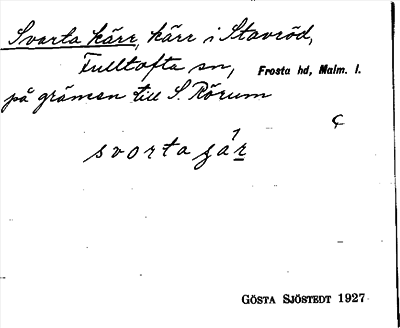 Svarta kärr, kärr i Stavröd,
Fulltofta sn, Frosta hd, Malm. l.
på gränsen till S. Rörum
ç
svorta
GÖSTA SJÖSTEDT 1927